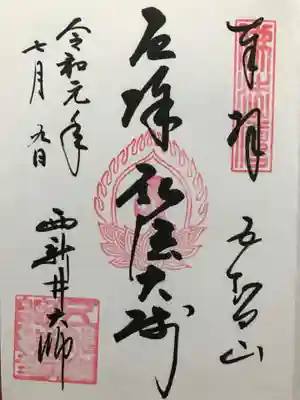 奉拝
五智山
厄除 弘法大師
令和元年
七月九日
西新井大師